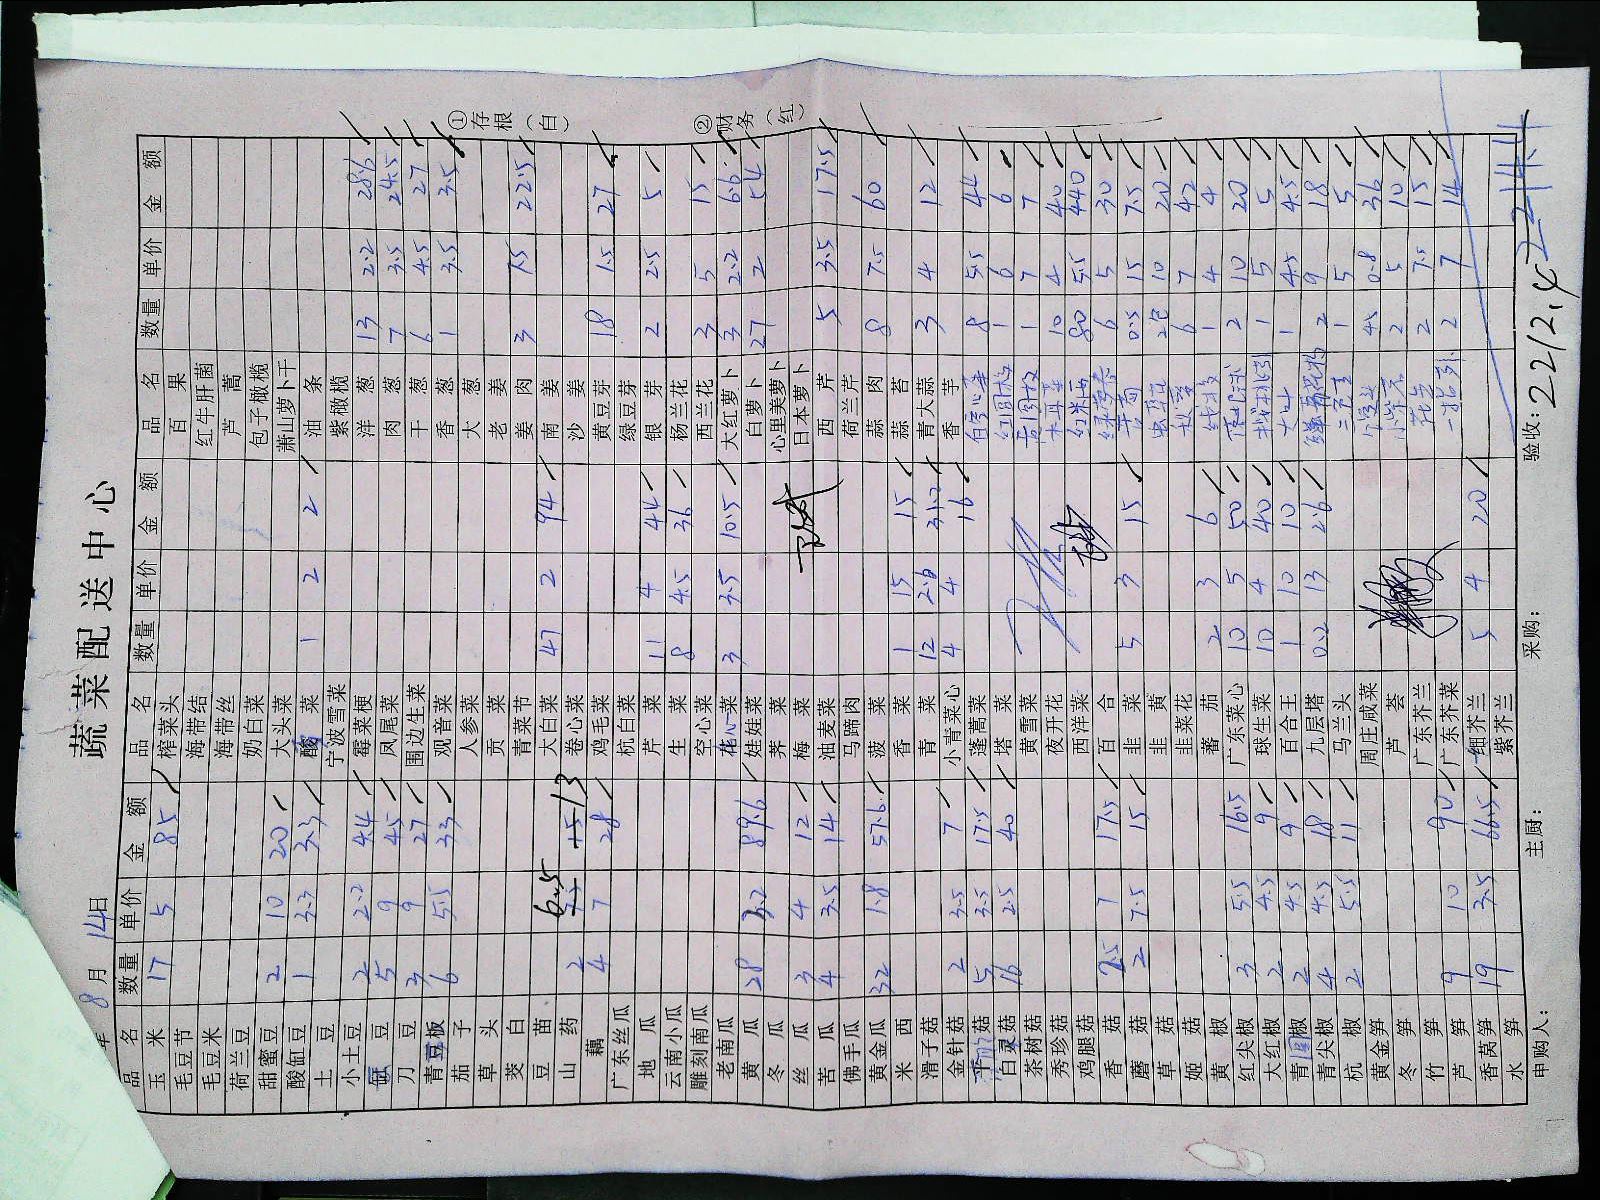 蔬菜配送中心
年 8 月 14 日
品名 数量 单价 金额 品名 数量 单价 金额 品名 数量 单价 金额
玉米 17 5 85 榨菜头 百果
毛豆节 海带结 红牛肝菌
毛豆米 海带丝 芦蒿
荷兰豆 奶白菜 包子橄榄
甜蜜豆 2 10 20 大头菜 萧山萝卜干
酸缸豆 1 3.3 3.3 酸菜 1 2 2 油条
土豆 宁波雪菜 紫橄榄
小土豆 2 2.2 4.4 霉菜梗 洋葱 13 2.2 28.6
豇豆 5 9 45 凤尾菜 肉葱 7 3.5 24.5
刀豆 3 9 27 围边生菜 干葱 6 4.5 27
青豆板 6 5.5 33 观音菜 香葱 1 3.5 3.5
茄子 人参菜 大葱
草头 贡菜 老姜
茭白 青菜节 姜肉 3 7.5 22.5
豆苗 大白菜 47 2 94 南姜
山药 2 6.5 13 卷心菜 沙姜
藕 4 7 28 鸡毛菜 黄豆芽 18 1.5 27
广东丝瓜 杭白菜 绿豆芽
地瓜 芹菜 11 4 44 银芽 2 2.5 5
云南小瓜 生菜 8 4.5 36 杨兰花
雕刻南瓜 空心菜 西兰花 3 5 15
老南瓜 花心菜 3 3.5 10.5 大红萝卜 3 2.2 6.6
黄瓜 28 3.2 89.6 娃娃菜 白萝卜 27 2 54
冬瓜 荠菜 心里美萝卜
丝瓜 3 4 12 梅菜 日本萝卜
苦瓜 4 3.5 14 油麦菜 西芹 5 3.5 17.5
佛手瓜 马蹄肉 荷兰芹
黄金瓜 32 1.8 57.6 菠菜 蒜肉 8 7.5 60
米西 香菜 1 15 15 蒜苔
滑子菇 青菜 12 2.6 31.2 青大蒜 3 4 12
金针菇 2 3.5 7 小青菜心 4 4 16 香芋
平菇 5 3.5 17.5 蓬蒿菜 8 5.5 44
白灵菇 16 2.5 40 塔菜 红圆椒 1 6 6
茶树菇 黄雪菜 黄圆椒 1 7 7
秀珍菇 夜开花 木耳菜 10 4 40
鸡腿菇 西洋菜 红米西 80 5.5 440
香菇 2.5 7 17.5 百合 6 5 30
蘑菇 2 7.5 15 韭菜 5 3 15 0.5 15 7.5
草菇 韭黄 2包 10 20
姬菇 韭菜花 6 7 42
黄椒 番茄 2 3 6 1 4 4
红尖椒 3 5.5 16.5 广东菜心 10 5 50 2 10 20
大红椒 2 4.5 9 球生菜 10 4 40 1 5 5
青圆椒 2 4.5 9 百合王 1 10 10 1 4.5 4.5
青尖椒 4 4.5 18 九层塔 0.2 13 2.6 2 9 18
杭椒 2 5.5 11 马兰头 1 5 5
黄金笋 周庄咸菜 45 0.8 36
冬笋 芦荟 2 5 10
竹笋 广东芥兰 2 7.5 15
芦笋 9 10 90 广东芥菜 2 7 14
香莴笋 19 3.5 66.5 细芥兰 5 4 20
水笋 紫芥兰
申购人: 主厨: 采购: 验收: 2212.4
①存根(白)
②财务(红)